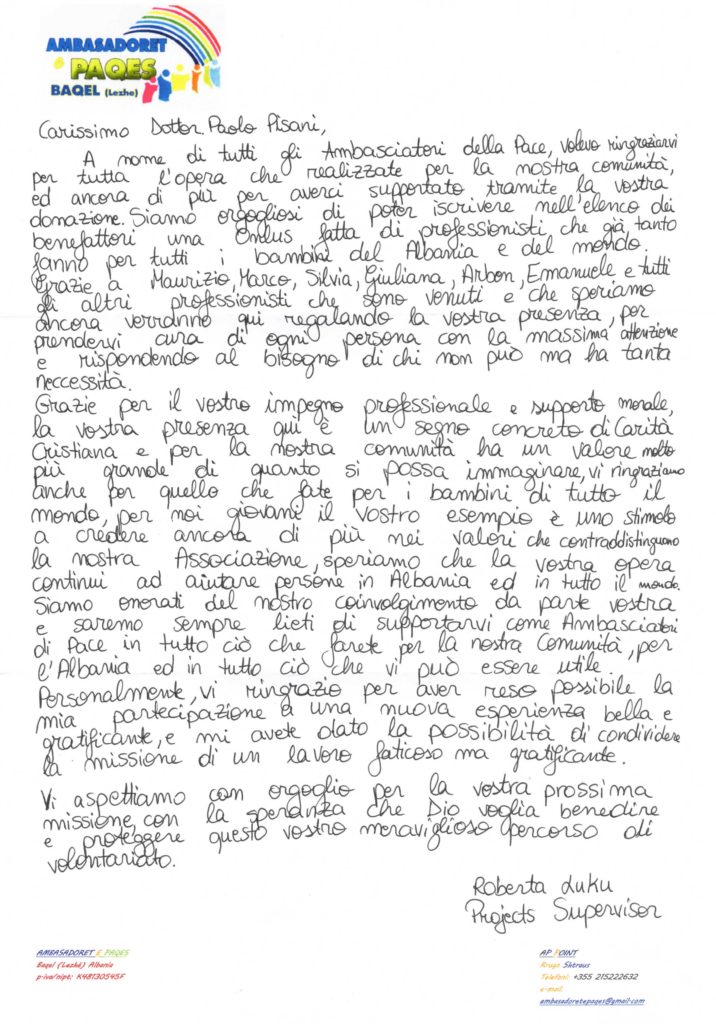 AMBASADORET
E PAQES
BAQEL (Lezhe)
Carissimo Dottor. Paolo Pisani,
A nome di tutti gli Ambasciatori della Pace, volevo ringraziarvi
per tutta l'opera che realizzate per la nostra comunità,
ed ancora di più per averci supportato tramite la vostra
donazione. Siamo orgogliosi di poter iscrivere nell'elenco dei
benefattori una Onlus fatta di professionisti che già tanto
fanno per tutti i bambini del Albania e del mondo.
Grazie a Maurizio, Marco, Silvia, Giuliana, Arbon, Emanuele e tutti
gli altri professionisti che sono venuti e che speriamo
ancora verranno qui regalando la vostra presenza, per
prendervi cura di ogni persona con la massima attenzione
e rispondendo al bisogno di chi non può ma ha tanta
neccessità.
Grazie per il vostro impegno professionale e supporto morale,
la vostra presenza qui è un segno concreto di Carità
Cristiana e per la nostra comunità ha un valore molto
più grande di quanto si possa immaginare, vi ringraziamo
anche per quello che fate per i bambini di tutto il
mondo, per noi giovani il vostro esempio è uno stimolo
a credere ancora di più nei valori che contraddistinguono
la nostra Associazione, speriamo che la vostra opera
continui ad aiutare persone in Albania ed in tutto il mondo.
Siamo onorati del nostro coinvolgimento da parte vostra
e saremo sempre lieti di supportarvi come Ambasciatori
di Pace in tutto ciò che farete per la nostra Comunità, per
l'Albania ed in tutto ciò che vi può essere utile.
Personalmente, vi ringrazio per aver reso possibile la
mia partecipazione a una nuova esperienza bella e
gratificante, e mi avete dato la possibilità di condividere
la missione di un lavoro faticoso ma gratificante.
Vi aspettiamo con orgoglio per la vostra prossima
missione, con la speranza che Dio voglia benedire
e proteggere questo vostro meraviglioso percorso di
volontariato.
Roberta Luku
Projects Supervisor
AMBASADORET E PAQES
Baqel (Lezhë) Albania
p-iva/nipt: K48130545F
AP POINT
Rruga Shtraus
Telefoni: +355 215222632
e-mail:
ambasadoretepaqes@gmail.com